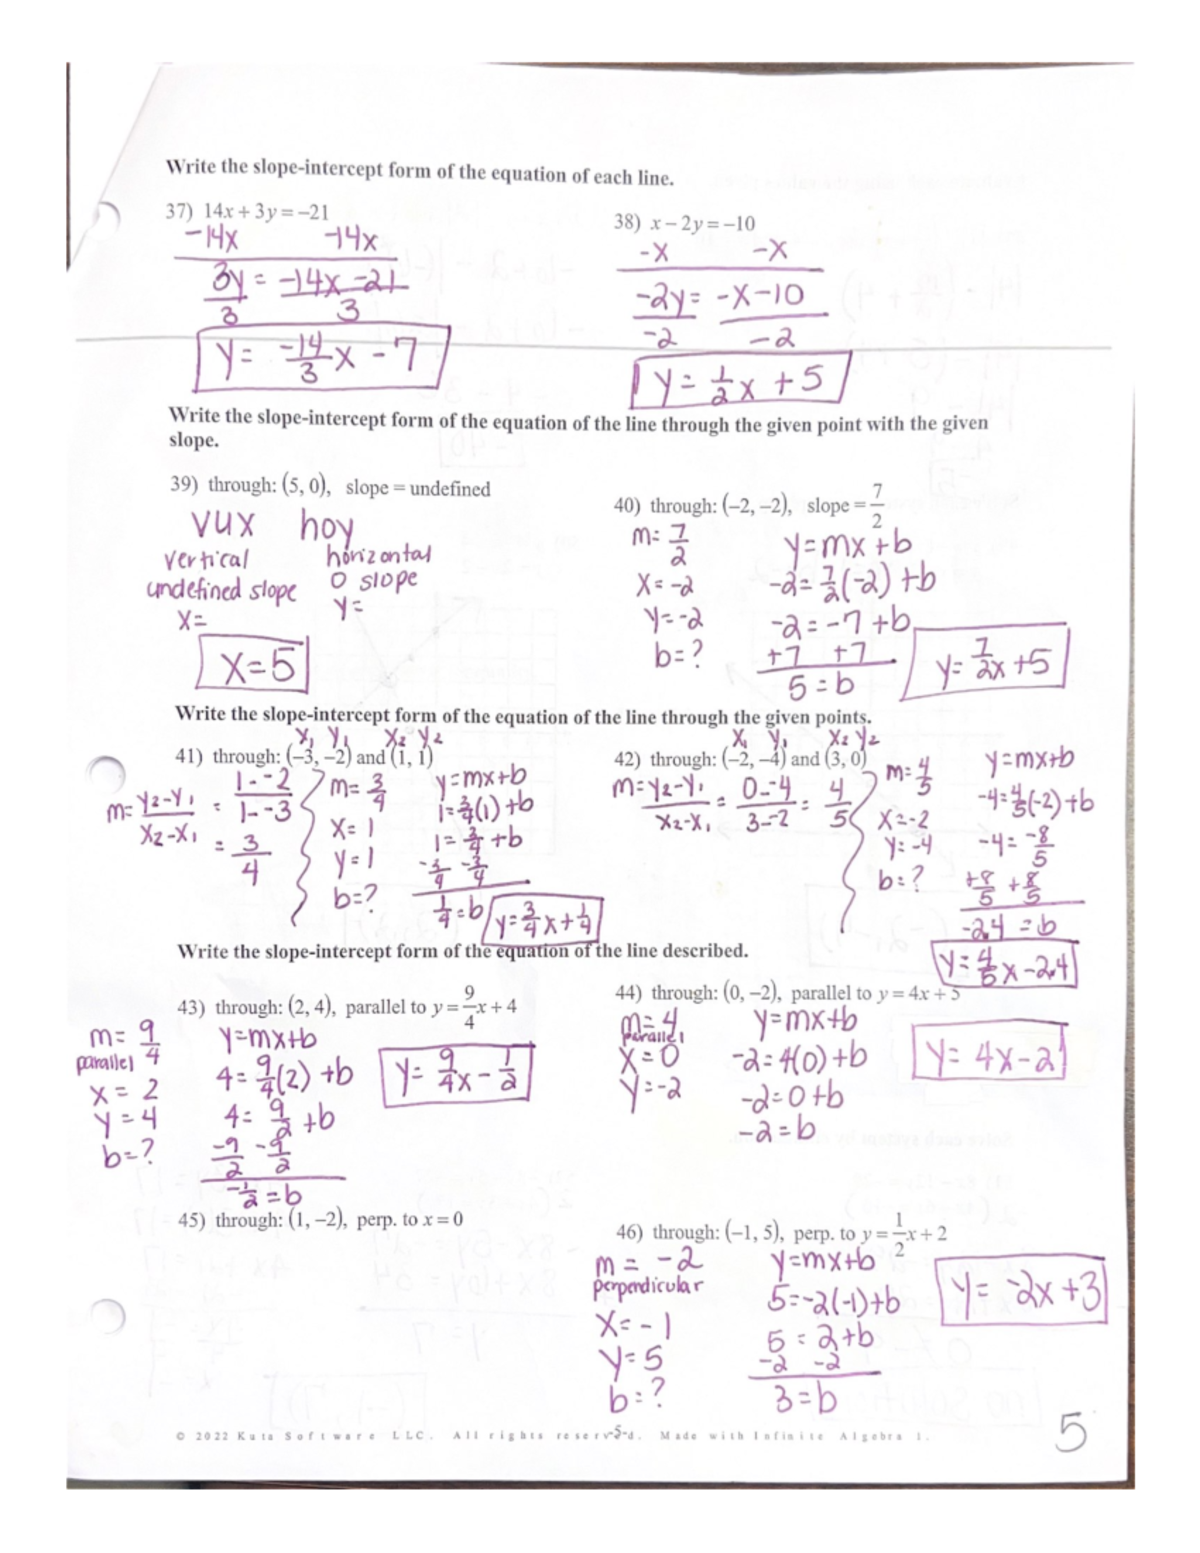 Write the slope-intercept form of the equation of each line.
37) 14x + 3y = −21
-14x -14x
3y = -14x -21
3 3
y = -14/3 x - 7
38) x − 2y = −10
-x -x
-2y = -x-10
-2 -2
y = 1/2 x + 5
Write the slope-intercept form of the equation of the line through the given point with the given
slope.
39) through: (5, 0), slope = undefined
vux hoy
vertical horizontal
undefined slope 0 slope
x= y=
x=5
40) through: (−2, −2), slope = 7/2
m= 7/2 y=mx+b
x=-2 -2= 7/2(-2)+b
y=-2 -2=-7+b
b=? +7 +7
5=b
y= 7/2x+5
Write the slope-intercept form of the equation of the line through the given points.
x₁ y₁ x₂ y₂
41) through: (−3, −2) and (1, 1)
m= y₂-y₁ / x₂-x₁ = 1--2 / 1--3
= 3/4
m= 3/4
x=1
y=1
b=?
y=mx+b
1= 3/4(1)+b
1= 3/4+b
-3/4 -3/4
1/4=b
y= 3/4x+1/4
x₁ y₁ x₂ y₂
42) through: (−2, −4) and (3, 0)
m= y₂-y₁ / x₂-x₁ = 0--4 / 3--2 = 4/5
m= 4/5
x=-2
y=-4
b=?
y=mx+b
-4= 4/5(-2)+b
-4= -8/5
+8/5 +8/5
-2.4 =b
y= 4/5x-2.4
Write the slope-intercept form of the equation of the line described.
43) through: (2, 4), parallel to y = 9/4x + 4
m= 9/4
parallel
x=2
y=4
b=?
y=mx+b
4= 9/4(2)+b
4= 9/2+b
-9/2 -9/2
-1/2=b
y= 9/4x- 1/2
44) through: (0, −2), parallel to y = 4x + 5
m=4
parallel
x=0
y=-2
y=mx+b
-2=4(0)+b
-2=0+b
-2=b
y= 4x-2
45) through: (1, −2), perp. to x = 0
46) through: (−1, 5), perp. to y = 1/2x + 2
m= -2
perpendicular
x=-1
y=5
b=?
y=mx+b
5=-2(-1)+b
5=2+b
-2 -2
3=b
y= -2x+3
© 2022 Kuta Software LLC. All rights reserved. Made with Infinite Algebra 1.
-5-
5